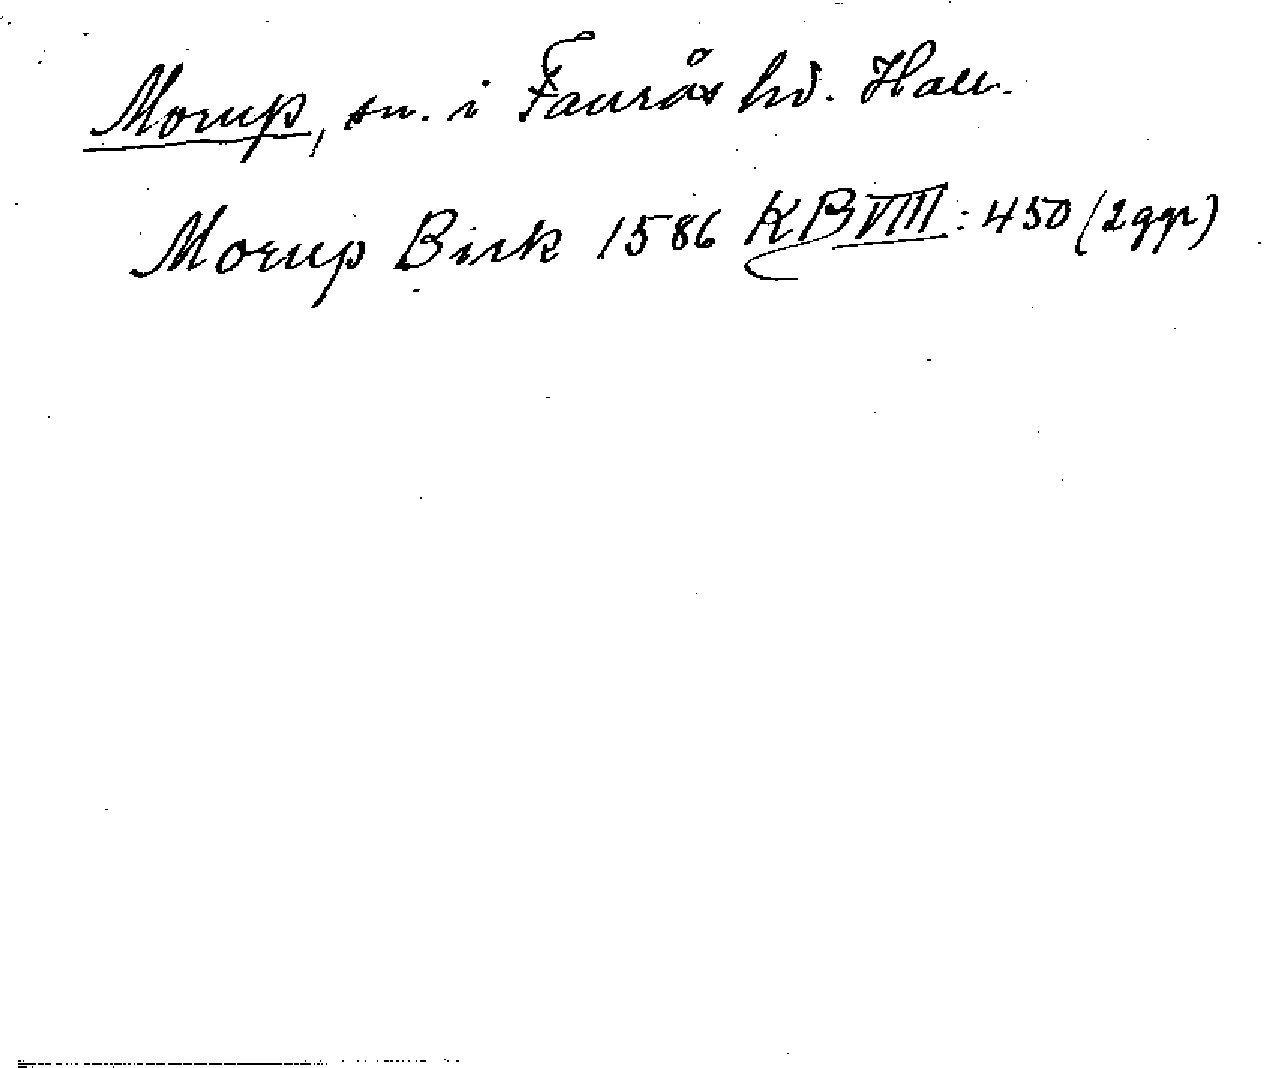 Morup, sn. i Faurås hd. Hall.
Morup Birk 1586 KB VIII: 450 (2 ggr)